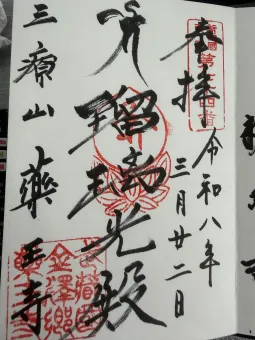 奉拝
令和八年
三月廿二日
瑠璃光殿
三療山 藥王寺
金澤郷